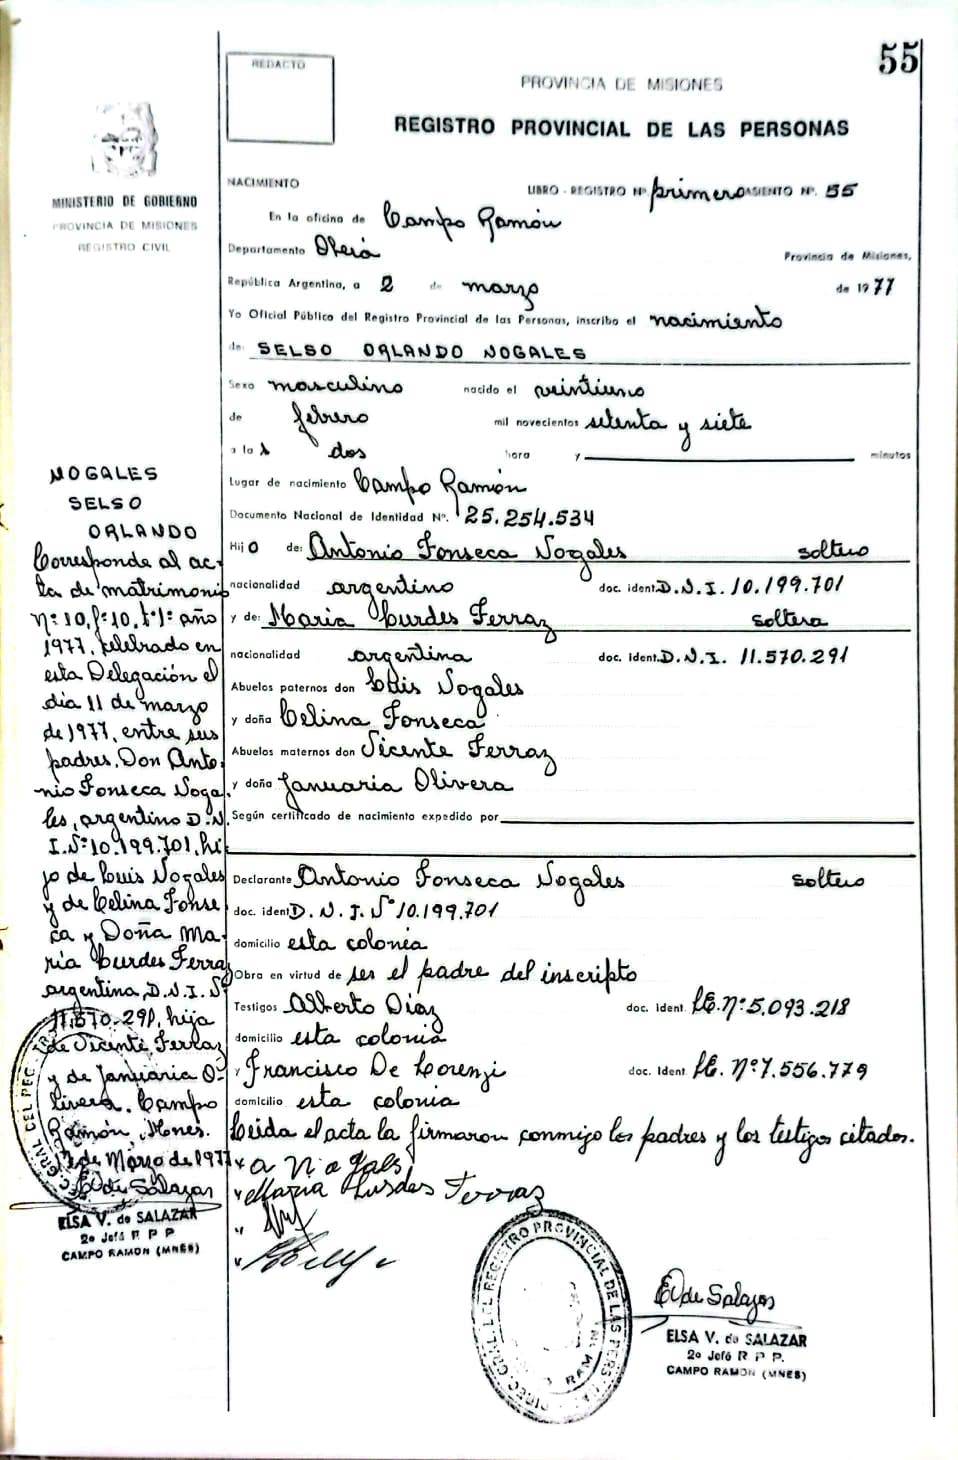 55
REDACTO
PROVINCIA DE MISIONES
REGISTRO PROVINCIAL DE LAS PERSONAS
MINISTERIO DE GOBIERNO
PROVINCIA DE MISIONES
REGISTRO CIVIL
NACIMIENTO
LIBRO - REGISTRO Nº primero ASIENTO Nº. 55
En la oficina de Campo Ramón
Departamento Oberá Provincia de Misiones,
República Argentina, a 2 de marzo de 1977
Yo Oficial Público del Registro Provincial de las Personas, inscribo el nacimiento
de: SELSO ORLANDO NOGALES
Sexo masculino nacido el veintiuno
de febrero mil novecientos setenta y siete
a la s dos hora y minutos
Lugar de nacimiento Campo Ramón
Documento Nacional de Identidad Nº. 25.254.534
Hijo de: Antonio Fonseca Nogales soltero
nacionalidad argentino doc. ident. D.N.I. 10.199.701
y de: Maria Lurdes Ferraz soltera
nacionalidad argentina doc. ident. D.N.I. 11.570.291
Abuelos paternos don Luis Nogales
y doña Celina Fonseca
Abuelos maternos don Vicente Ferraz
y doña Januaria Olivera
Según certificado de nacimiento expedido por
Declarante Antonio Fonseca Nogales soltero
doc. ident D.N.I. Nº 10.199.701
domicilio esta colonia
Obra en virtud de ser el padre del inscripto
Testigos Alberto Diaz doc. ident. L.E. Nº 5.093.218
domicilio esta colonia
y Francisco De Lorenzi doc. ident. L.E. Nº 7.556.779
domicilio esta colonia
Leida el acta la firmaron conmigo los padres y los testigos citados.
Maria Lurdes Ferraz
E V de Salazar
ELSA V. de SALAZAR
2º Jefé R P P.
CAMPO RAMON (MNES)
NOGALES
SELSO
ORLANDO
Corresponde al ac-
ta de matrimonio
Nº 10, fº 10, tº 1º año
1977, celebrado en
esta Delegación el
dia 11 de marzo
de 1977, entre sus
padres, Don Anto-
nio Fonseca Noga-
les, argentino D.N.
I. Nº 10.199.701, hi-
jo de Luis Nogales
y de Celina Fonse
ca y Doña Ma-
ria Lurdes Ferraz
argentina, D.N.I. Nº
11.570.291, hija
de Vicente Ferraz
y de Januaria O-
livera. Campo
Ramón, Mnes.
de Marzo de 1977
E V de Salazar
ELSA V. de SALAZAR
2º Jefé R P P
CAMPO RAMON (MNES)